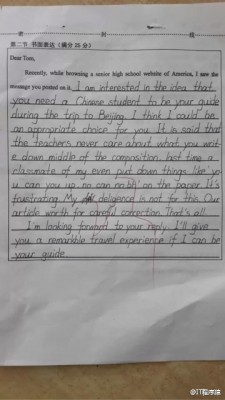 密 封 线
第二节 书面表达(满分25分)
Dear Tom,
Recently, while browsing a senior high school website of America, I saw the
message you posted on it. I am interested in the idea that
you need a Chinese student to be your guide
during the trip to Beijing. I think I could be
an appropriate choice for you. It is said that
the teachers never care about what you writ-
e down middle of the composition. Last time a
classmate of my even put down things like 'yo
u can you up, no can no bb' on the paper. It's
frustrating. My deligence is not for this. Our
article worth for careful correction. That's all.
I'm looking forward to your reply. I'll give
you a remarkble travel experience if I can be
your guide.